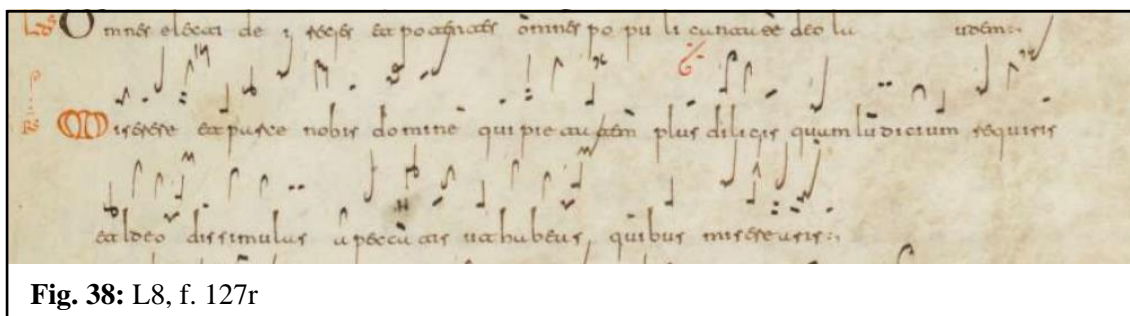 Omnes electi dei et omnes populi deo laudem
Miserere et parce nobis domine qui pietatem plus diligis quam iudicium requiris
et ideo dissimulas a peccatis ut habeas quibus miserearis
Fig. 38: L8, f. 127r